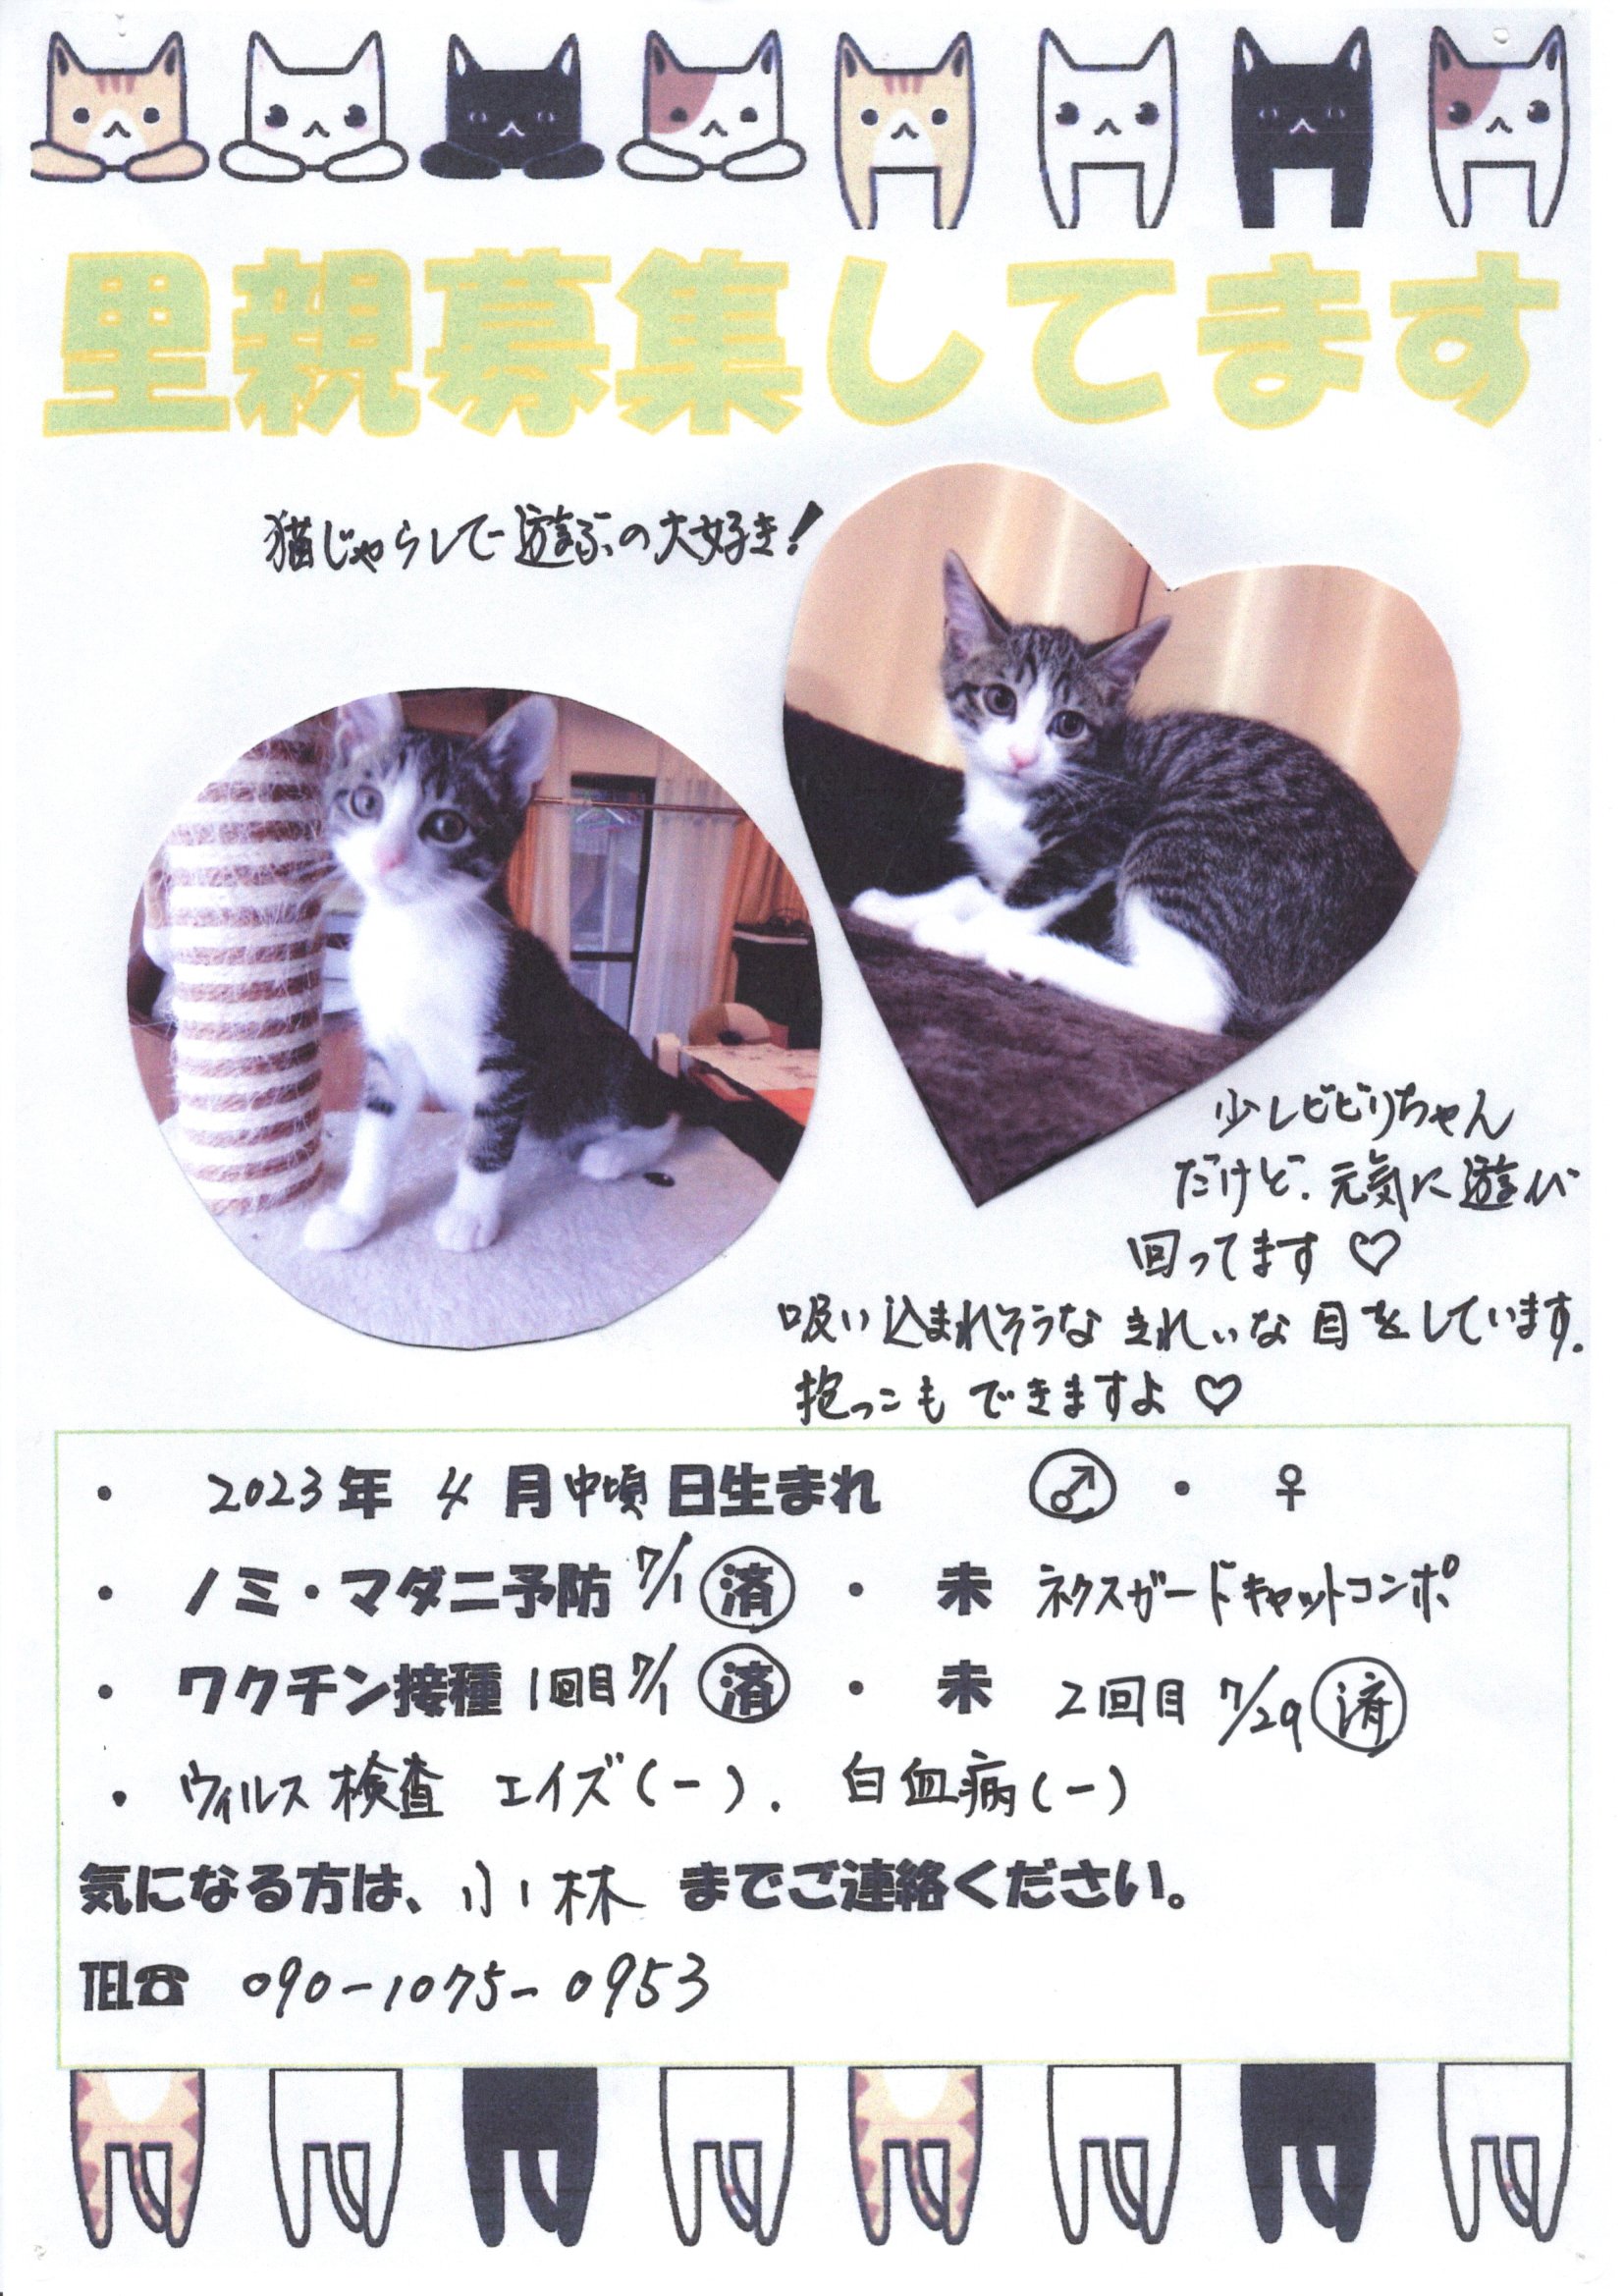 里親募集してます
猫じゃらしで遊ぶの大好き!
少しビビりちゃん
だけど、元気に遊び
回ってます♡
吸い込まれそうな きれいな目をしています。
抱っこも できますよ♡
・ 2023年 4月中頃日生まれ ♂ ・ ♀
・ ノミ・マダニ予防 7/1 済 ・ 未 ネクスガードキャットコンボ
・ ワクチン接種 1回目 7/1 済 ・ 未 2回目 7/29 済
・ ウィルス検査 エイズ(-). 白血病(-)
気になる方は、小林 までご連絡ください。
TEL☎ 090-1075-0953